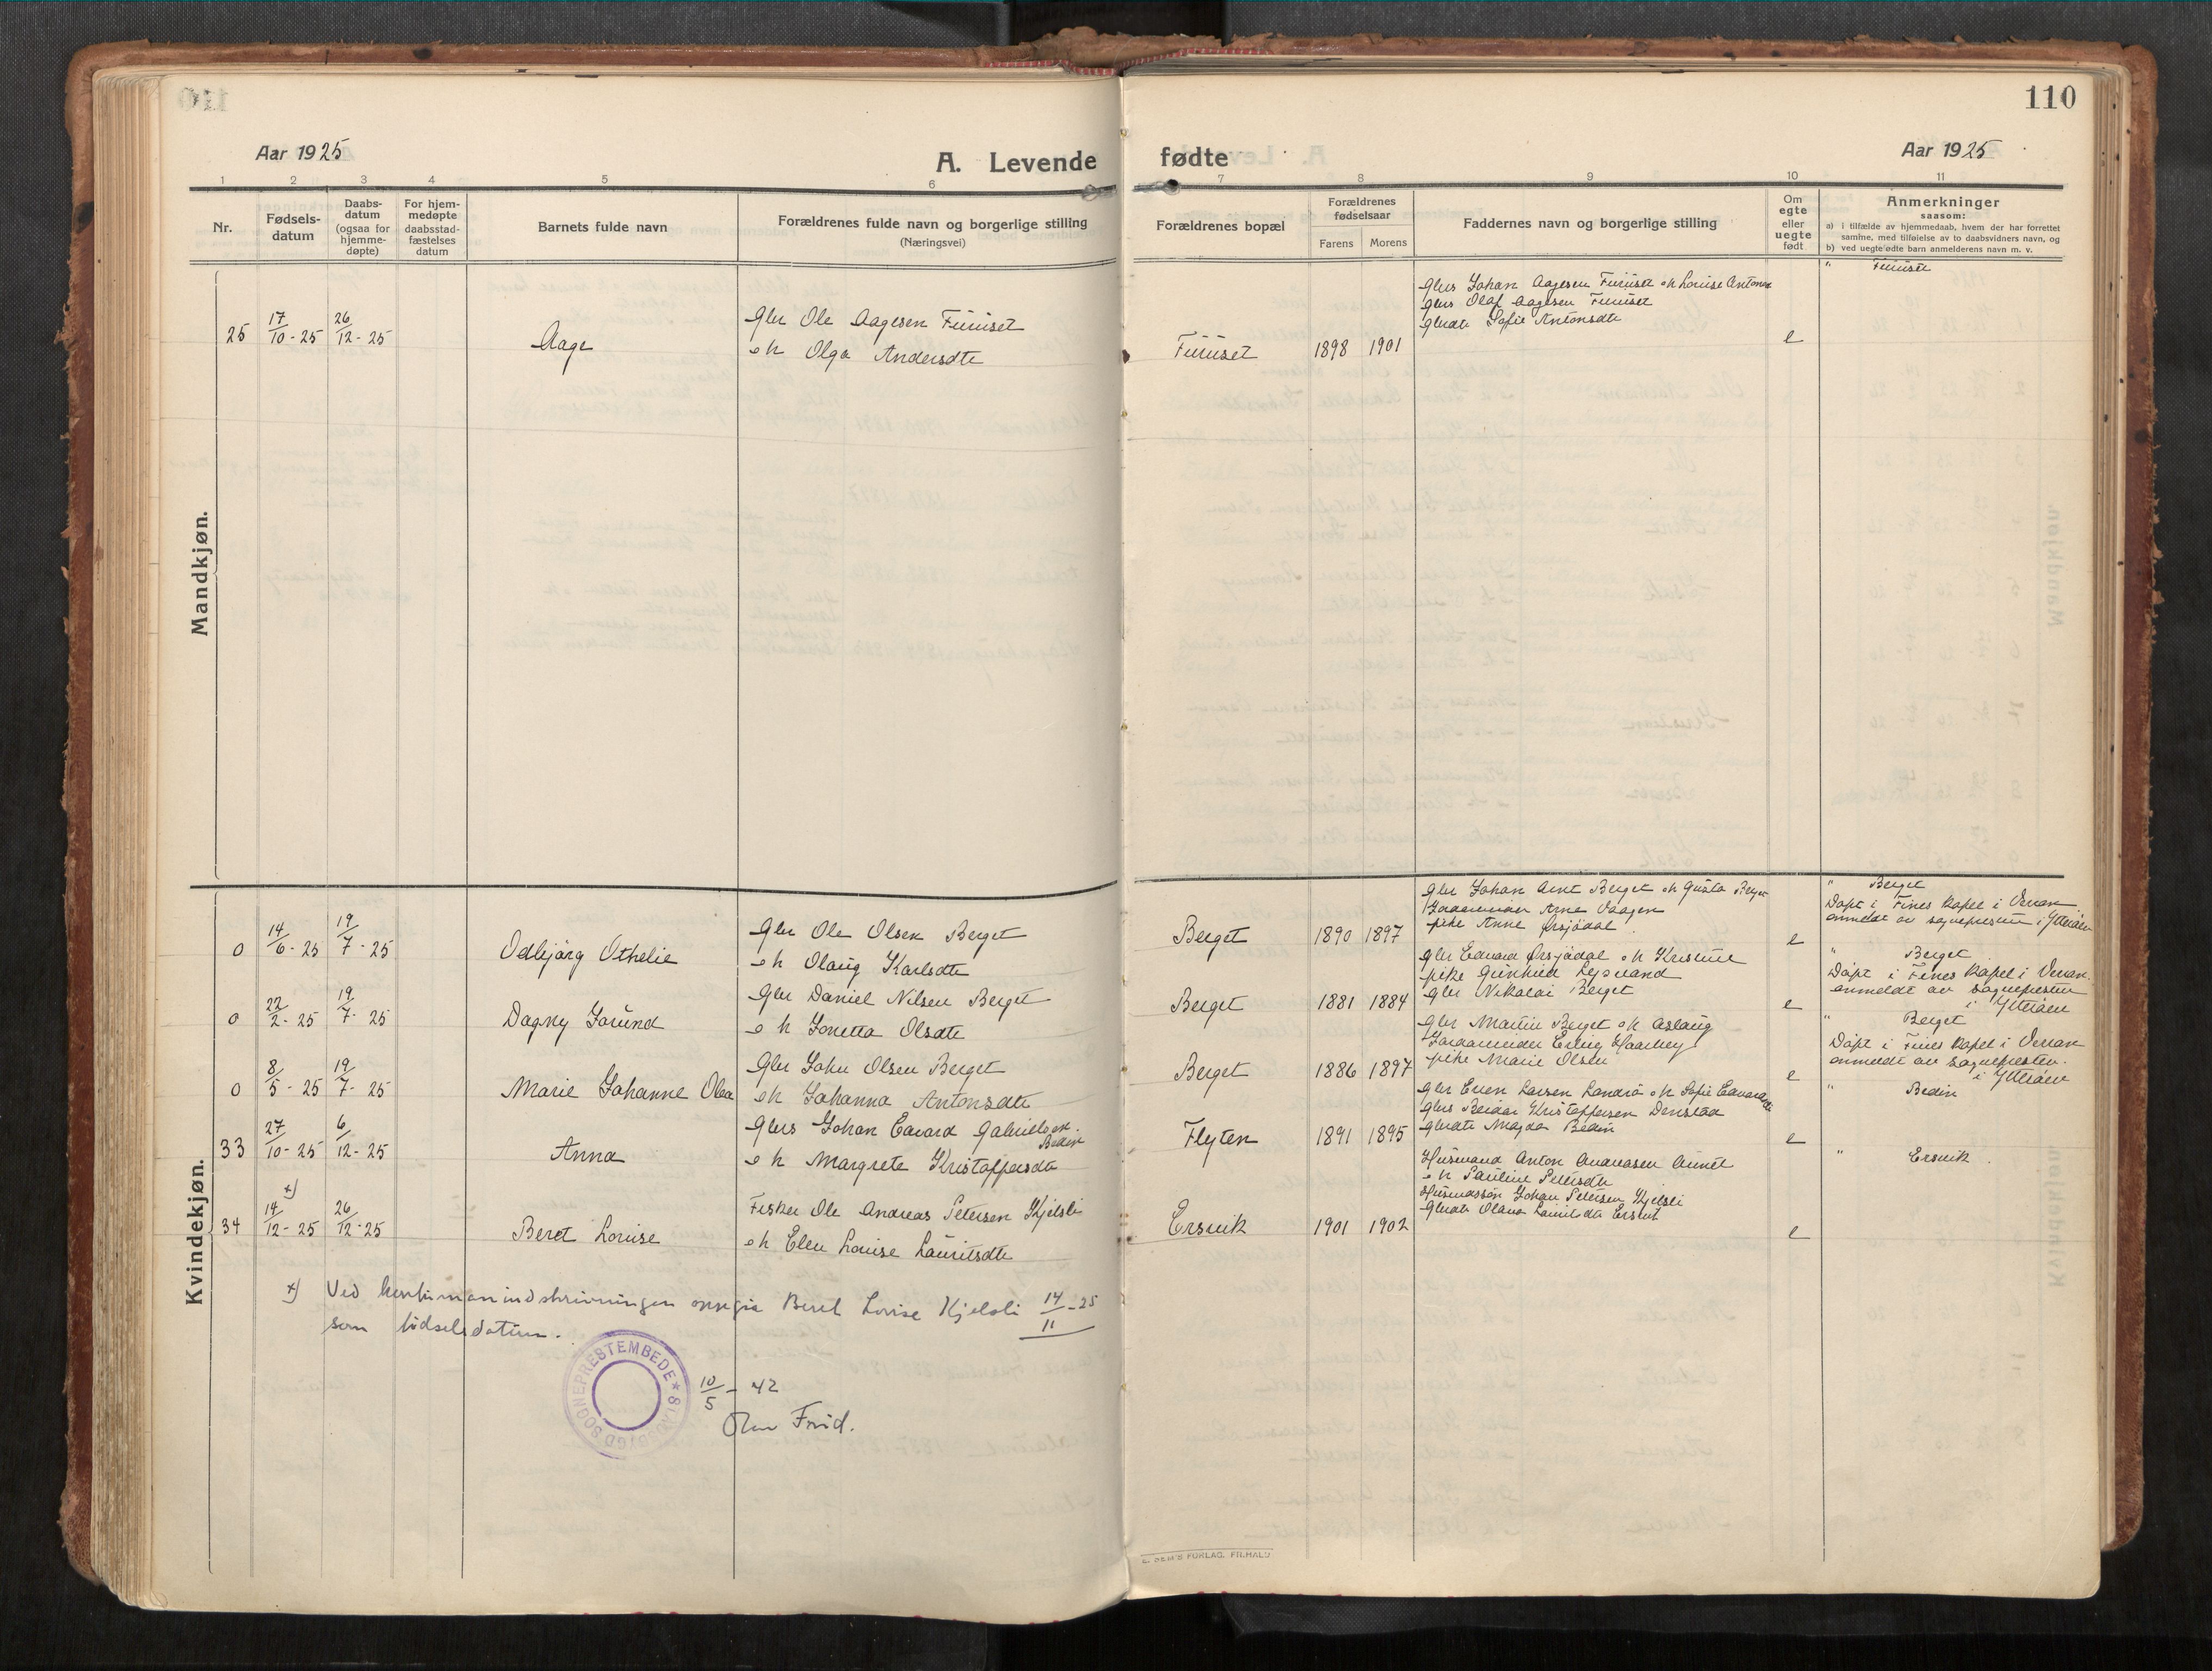 110
Aar 1925
A. Levende fødte
Aar 1925
1 2 3 4 5 6 7 8 9 10 11
Nr.
Fødsels-
datum
Daabs-
datum
(ogsaa for
hjemme-
døpte)
For hjem-
medøpte
daabsstad-
fæstelses
datum
Barnets fulde navn
Forældrenes fulde navn og borgerlige stilling
(Næringsvei)
Forældrenes bopæl
Forældrenes
fødselsaar
Farens Morens
Faddernes navn og borgerlige stilling
Om
egte
eller
uegte
født
Anmerkninger
saasom:
a) i tilfælde av hjemmedaab, hvem der har forrettet
samme, med tilføielse av to daabsvidners navn, og
b) ved uegte fødte barn anmelderens navn m. v.
Mandkjøn.
25 17/10-25 26/12-25 Aage
Gbr Ole Aagesen Furuset
o h Olga Andersdtr
Furuset 1898 1901
Gbrs Johan Aagesen Furuset o h Louise Antons
Gbrs Olaf Aagesen Furuset
Gbrdtr Sofie Antonsdtr
e
" Furuset
Kvindekjøn.
0 14/6-25 19/7-25 Odbjörg Othelie
Gbr Ole Olsen Berget
o h Olaug Karlsdtr
Berget 1890 1897
Gbr Johan Arnt Berget o h Gusta Berget
Arne Vaagen
pike Anne Ørsjödal
e
" Berget
Döpt i Fines kapel i Verran
anmeldt av sognepresten i Ytterøen
0 22/2-25 19/7-25 Dagny Jorund
Gbr Daniel Nilsen Berget
o h Jonetta Olsdtr
Berget 1881 1884
Gbr Edvard Ørsjödal o h Kristine
pike Gunhild
Gbr Nikolai Berget
e
" Berget
Döpt i Fines kapel i Verran
anmeldt av sognepresten
i Ytterøen
0 8/5-25 19/7-25 Marie Johanne Olea
Gbr John Olsen Berget
o h Johanna Antonsdtr
Berget 1886 1897
Gbr Martin Berget o h Aslaug
Erling
pike Marie Olsen
e
" Berget
Döpt i Fines kapel i Verran
anmeldt av sognepresten
i Ytterøen
33 27/10-25 6/12-25 Anna
Gbrs Johan Edvard Gabrielsen
Bedin
o h Margrete Kristoffersdtr
Flyten 1891 1895
Gbr Even Larsen Landrö o h Sofie Edvardsdtr
Gbrs Peder Kristoffersen Denstad
Gbrdtr Magda Bedin
e
" Bedin
x)
34 14/12-25 26/12-25 Beret Louise
Fisker Ole Andreas Petersen Kjelsli
o h Elen Louise Lauritsdtr
Ersvik 1901 1902
Husmand Anton Andreasen Aunet
o h Pauline Petersdtr
Husmandssön Johan Petersen Kjelsli
Gbrdtr Olava Lauritsdtr Ersvik
e
" Ersvik
x) Ved konfirmanindskrivningen opgir Beret Lovise Kjelsli 14/11-25
som fødselsdatum.
SOGNEPRESTEMBEDE
10/5 - 42
Frid.
FORLAG. FILHALS